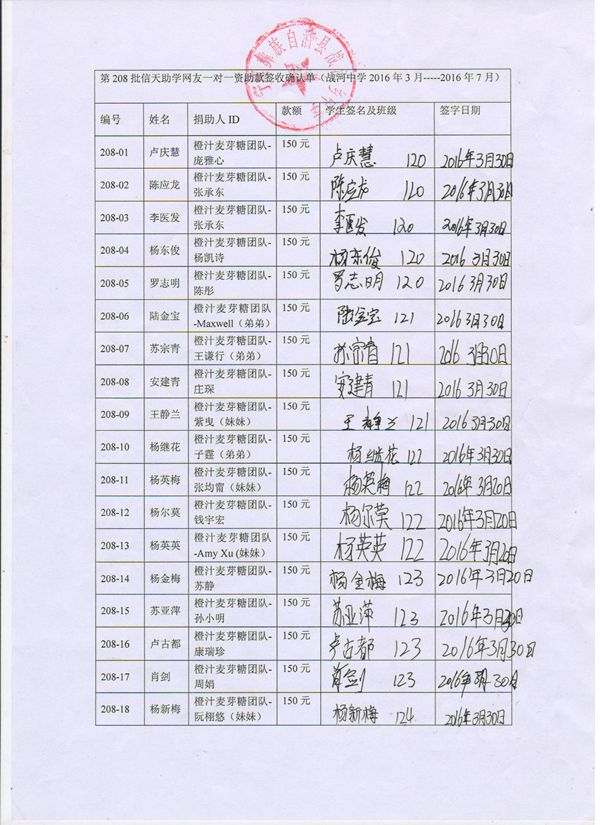 宁 彝族自治县战河乡中
第 208 批信天助学网友一对一资助款签收确认单（战河中学 2016 年 3 月-----2016 年 7 月）
编号 姓名 捐助人 ID 款额 学生签名及班级 签字日期
208-01 卢庆慧 橙汁麦芽糖团队- 150 元 卢庆慧 120 2016年3月30日
庞雅心
208-02 陈应龙 橙汁麦芽糖团队- 150 元 陈应龙 120 2016年3月30日
张承东
208-03 李医发 橙汁麦芽糖团队- 150 元 李医发 120 2016年3月30日
张承东
208-04 杨东俊 橙汁麦芽糖团队- 150 元 杨东俊 120 2016 3月30日
杨凯诗
208-05 罗志明 橙汁麦芽糖团队- 150 元 罗志明 120 2016 3月30日
陈彤
208-06 陆金宝 橙汁麦芽糖团队 150 元 陆金宝 121 2016 3月30日
-Maxwell（弟弟）
208-07 苏宗青 橙汁麦芽糖团队- 150 元 苏宗青 121 2016 3月30日
王谦行（弟弟）
208-08 安建青 橙汁麦芽糖团队- 150 元 安建青 121 2016 3月30日
庄琛
208-09 王静兰 橙汁麦芽糖团队- 150 元 王静兰 121 2016 3月30日
紫曳（妹妹）
208-10 杨继花 橙汁麦芽糖团队- 150 元 杨继花 122 2016年3月30日
子霆（弟弟）
208-11 杨英梅 橙汁麦芽糖团队- 150 元 杨英梅 122 2016年3月20日
张均甯（妹妹）
208-12 杨尔莫 橙汁麦芽糖团队- 150 元 杨尔莫 122 2016年3月20日
钱宇宏
208-13 杨英英 橙汁麦芽糖团队 150 元 杨英英 122 2016年3月20日
-Amy Xu (妹妹）
208-14 杨金梅 橙汁麦芽糖团队- 150 元 杨金梅 123 2016年3月20日
苏静
208-15 苏亚萍 橙汁麦芽糖团队- 150 元 苏亚萍 123 2016年3月30日
孙小明
208-16 卢古都 橙汁麦芽糖团队- 150 元 卢古都 123 2016年3月30日
康瑞珍
208-17 肖剑 橙汁麦芽糖团队- 150 元 肖剑 123 2016年3月30日
周娟
208-18 杨新梅 橙汁麦芽糖团队- 150 元 杨新梅 124 2016年3月30日
阮栩悠（妹妹）